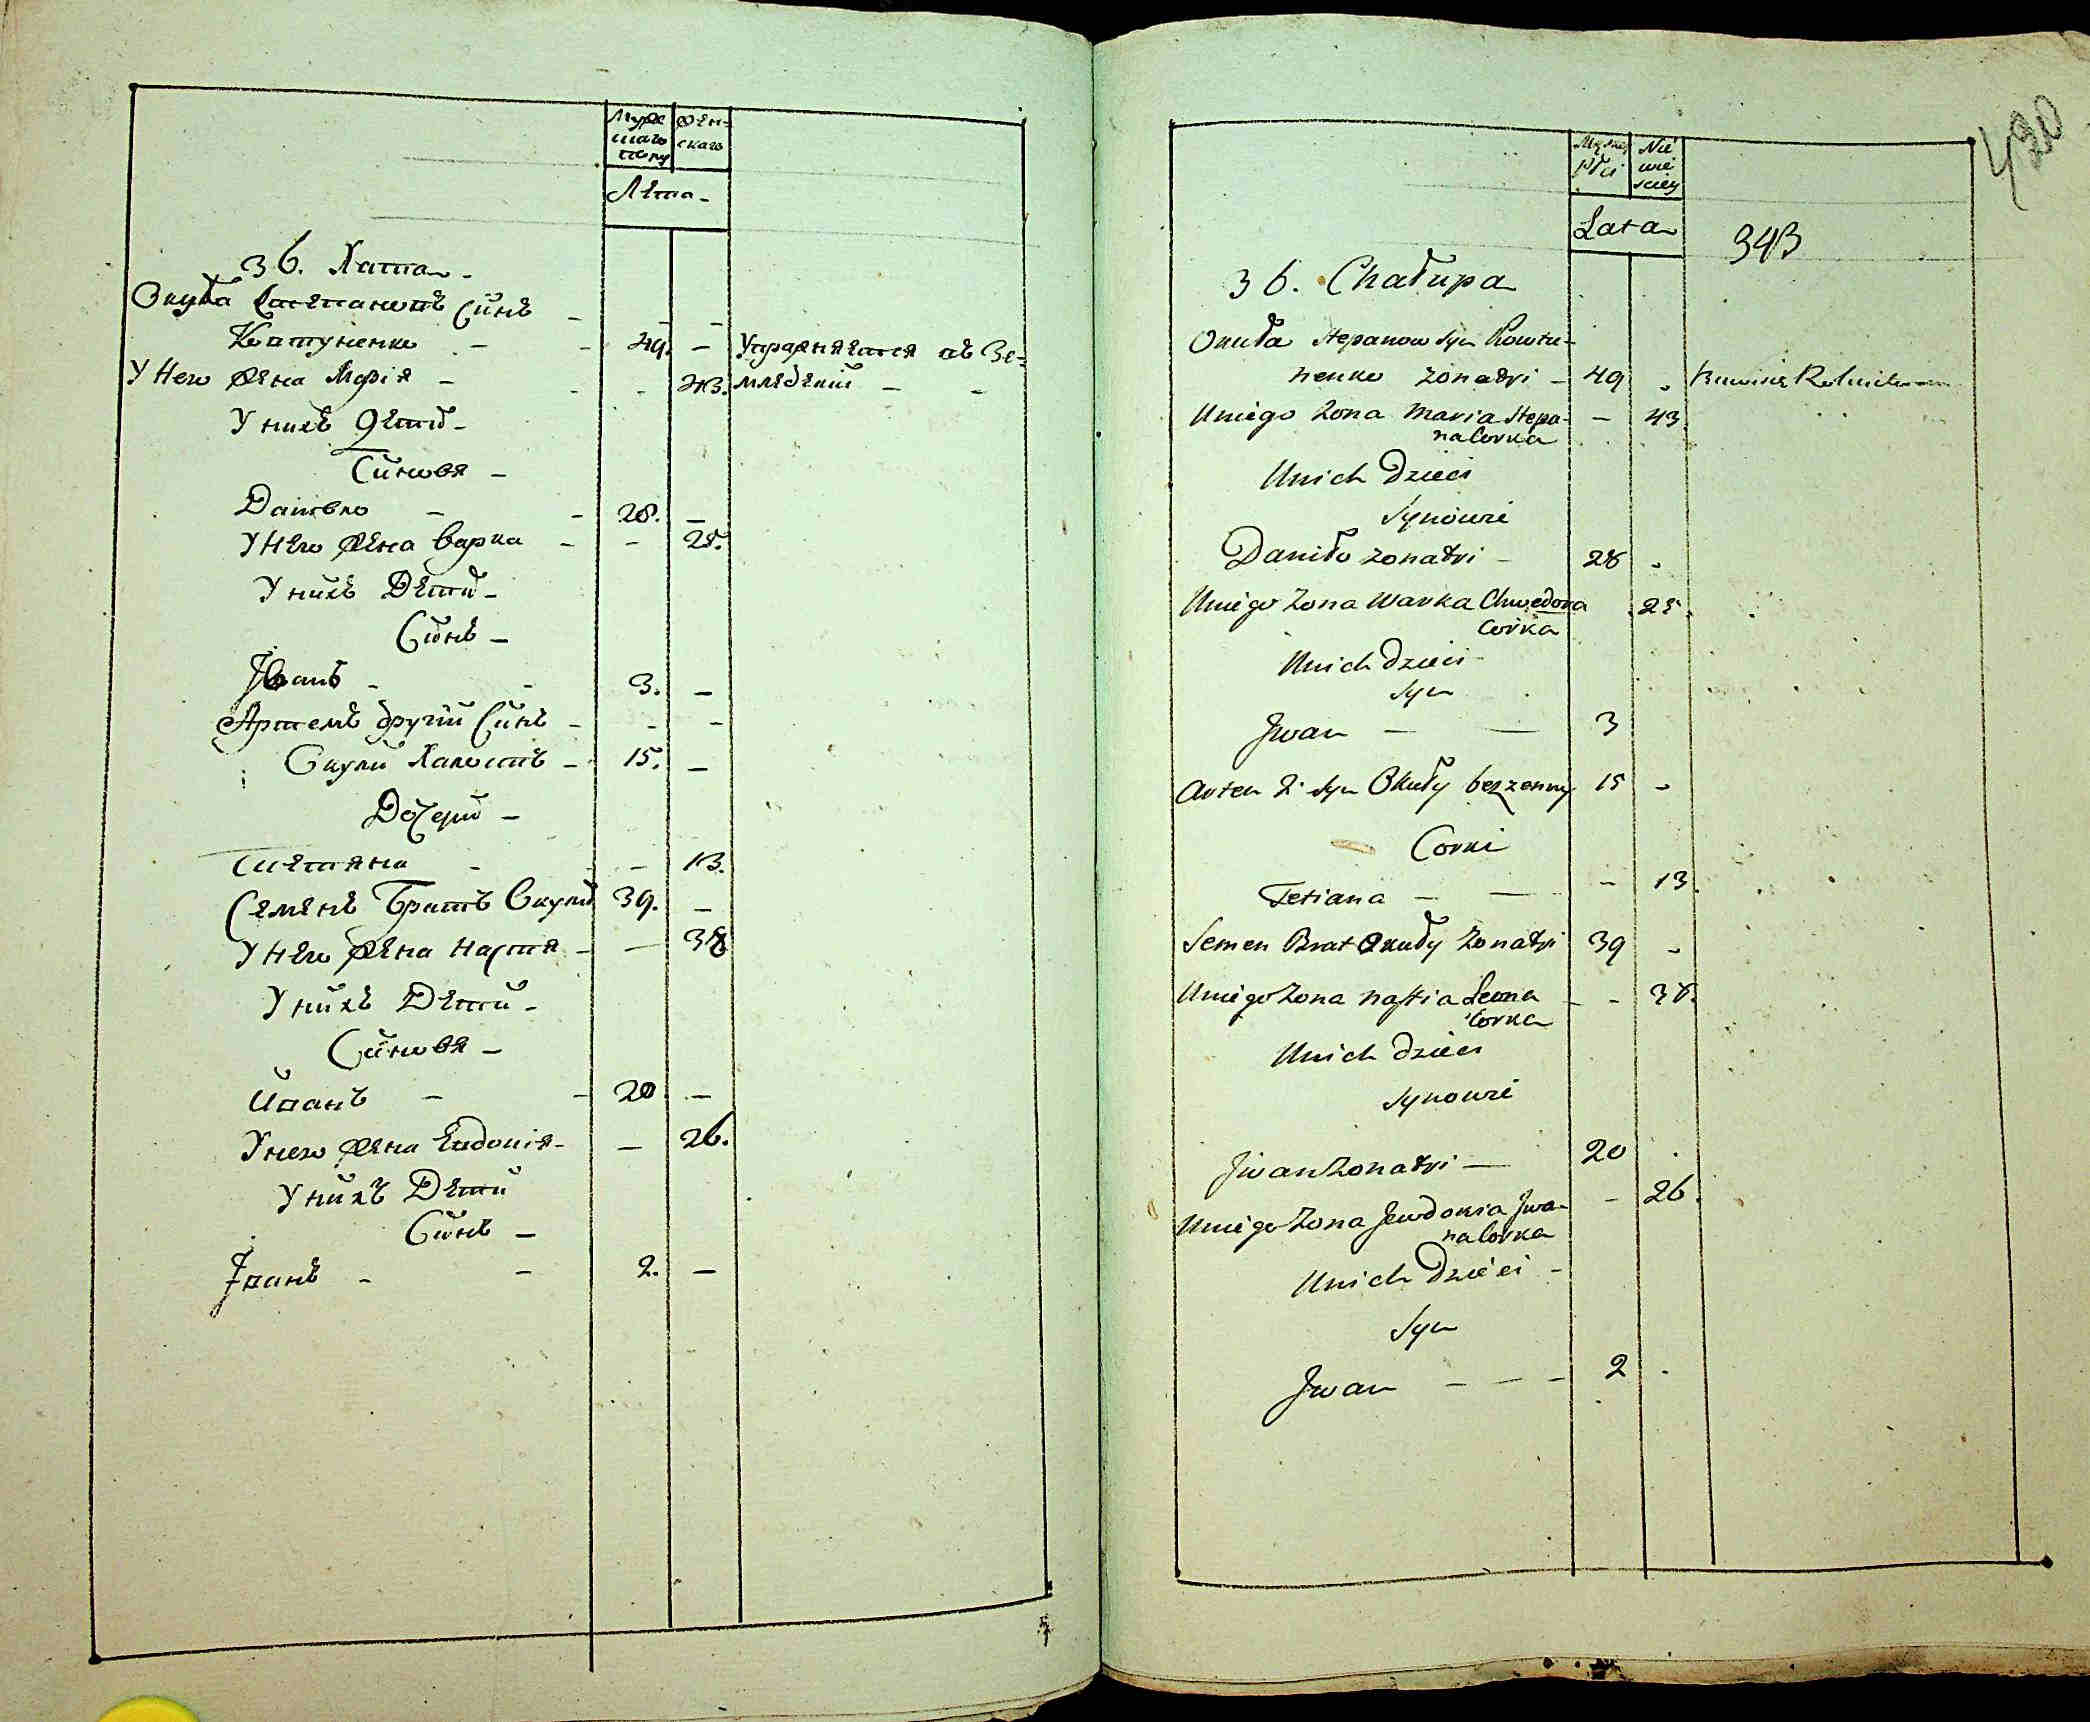 Муже
скаго
полу
Жен-
скаго
Лета -
36. Хата -
Окула Степановъ Синъ -
Ковтуненко - - 49. - Упражняется въ Зе-
У Него Жена Марія - - 43. мледелии -
У нихъ Дети -
Синовя -
Данило - - 28. -
У Него Жена Варка - - 25.
У нихъ Дети -
Синъ -
Іванъ - - 3. -
Артемъ другій Синъ - - -
Окули Холостъ - 15. -
Дочери -
Тетяна - - - 13.
Семенъ Братъ Окули 39. -
У Него Жена Настя - - 38
У нихъ Дети -
Синовя -
Иванъ - - 20 -
У него Жена Евдокія - - 26.
У нихъ Дети
Синъ -
Іванъ - - 2. -
420
Męskiey
Płci
Nie
wie
sciey
Lata
343
36. Chałupa
Okuła Stepanow Syn Kowtu-
nenko Zonatyi - 49 -
Uniego Zona Maria Stepa- - 43.
na Corka
Unich Dzieci
Synowie
Daniło zonatyi - 28 -
Uniego Zona Warka Chwedora 25.
Corka
Unich Dzieci -
Syn
Jwan - - 3
Artem 2. Syn Okuły bezzenny 15 -
Corki
Tetiana - - - 13.
Semen Brat Okuły Zonatyi 39 -
Uniego Zona Nastia Leona - - 38.
Corka
Unich Dzieci
Synowie
Jwan Zonatyi - 20 .
Uniego Zona Jewdokia Jwa- - 26.
na Corka
Unich Dzieci -
Syn
Jwan - - - 2 .